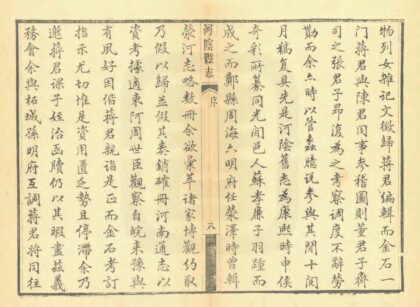 物列女雜記文徵歸蔣君編輯而金石一
門蔣君與陳君同事參稽圖則董君子齊
司之張君子昂復為之考察調度不辭勞
勩而余亦時以管蠡臆說參與其間十閱
月稿复具先是河陰舊志為康熙時申侯
奇彩所纂同光間邑人蘇孝廉子羽踵而
成之而鄭縣周海六明府任滎澤時曾輯
滎河志略數冊余欲彙萃諸家博觀約取
乃假以歸並假其表銷確冊河南通志以
資考據適東河周世臣觀察自皖東豫與
有夙好因偕蔣君親詣是正而金石考訂
指示尤切惟是資用匱乏勢且停滯余乃
邀蔣君課子姪治函牘仍以其暇畫茲義
務會余與柘城孫明府互調蔣君將同往
河陰縣志
序
八